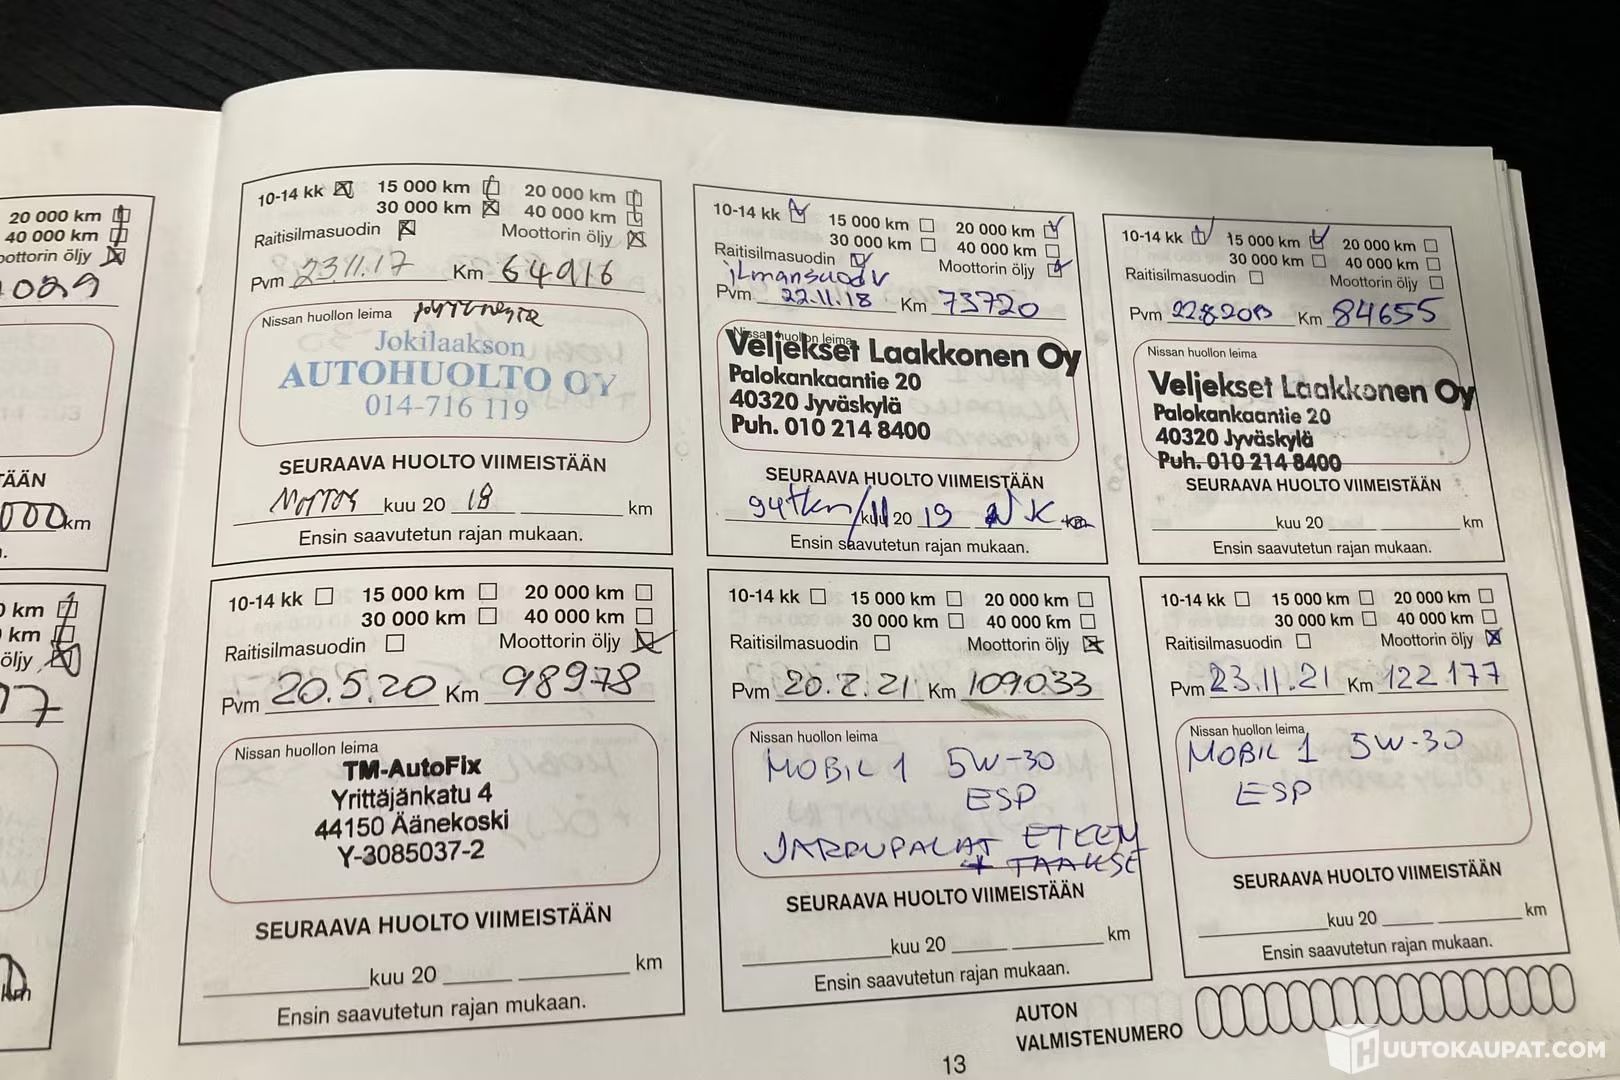 20 000 km
40 000 km
oottorin öljy
TÄÄN
000 km
0 km
km
öljy
77
10-14 kk 15 000 km 20 000 km
30 000 km 40 000 km
Raitisilmasuodin Moottorin öljy
Pvm 23.11.17 Km 64916
Nissan huollon leima
Jokilaakson
AUTOHUOLTO OY
014-716 119
SEURAAVA HUOLTO VIIMEISTÄÄN
kuu 20 18 km
Ensin saavutetun rajan mukaan.
10-14 kk 15 000 km 20 000 km
30 000 km 40 000 km
Raitisilmasuodin Moottorin öljy
Pvm 22.11.18 Km 73720
Nissan huollon leima
Veljekset Laakkonen Oy
Palokankaantie 20
40320 Jyväskylä
Puh. 010 214 8400
SEURAAVA HUOLTO VIIMEISTÄÄN
94tkm/11 kuu 20 19 km
Ensin saavutetun rajan mukaan.
10-14 kk 15 000 km 20 000 km
30 000 km 40 000 km
Raitisilmasuodin Moottorin öljy
Pvm Km 84655
Nissan huollon leima
Veljekset Laakkonen Oy
Palokankaantie 20
40320 Jyväskylä
Puh. 010 214 8400
SEURAAVA HUOLTO VIIMEISTÄÄN
kuu 20 km
Ensin saavutetun rajan mukaan.
10-14 kk 15 000 km 20 000 km
30 000 km 40 000 km
Raitisilmasuodin Moottorin öljy
Pvm 20.5.20 Km 98978
Nissan huollon leima
TM-AutoFix
Yrittäjänkatu 4
44150 Äänekoski
Y-3085037-2
SEURAAVA HUOLTO VIIMEISTÄÄN
kuu 20 km
Ensin saavutetun rajan mukaan.
10-14 kk 15 000 km 20 000 km
30 000 km 40 000 km
Raitisilmasuodin Moottorin öljy
Pvm 20.2.21 Km 109033
Nissan huollon leima
MOBIL 1 5W-30
ESP
JARRUPALAT ETEEN
+ TAAKSE
SEURAAVA HUOLTO VIIMEISTÄÄN
kuu 20 km
Ensin saavutetun rajan mukaan.
10-14 kk 15 000 km 20 000 km
30 000 km 40 000 km
Raitisilmasuodin Moottorin öljy
Pvm 23.11.21 Km 122177
Nissan huollon leima
MOBIL 1 5W-30
ESP
SEURAAVA HUOLTO VIIMEISTÄÄN
kuu 20 km
Ensin saavutetun rajan mukaan.
AUTON
VALMISTENUMERO
13
HUUTOKAUPAT.COM